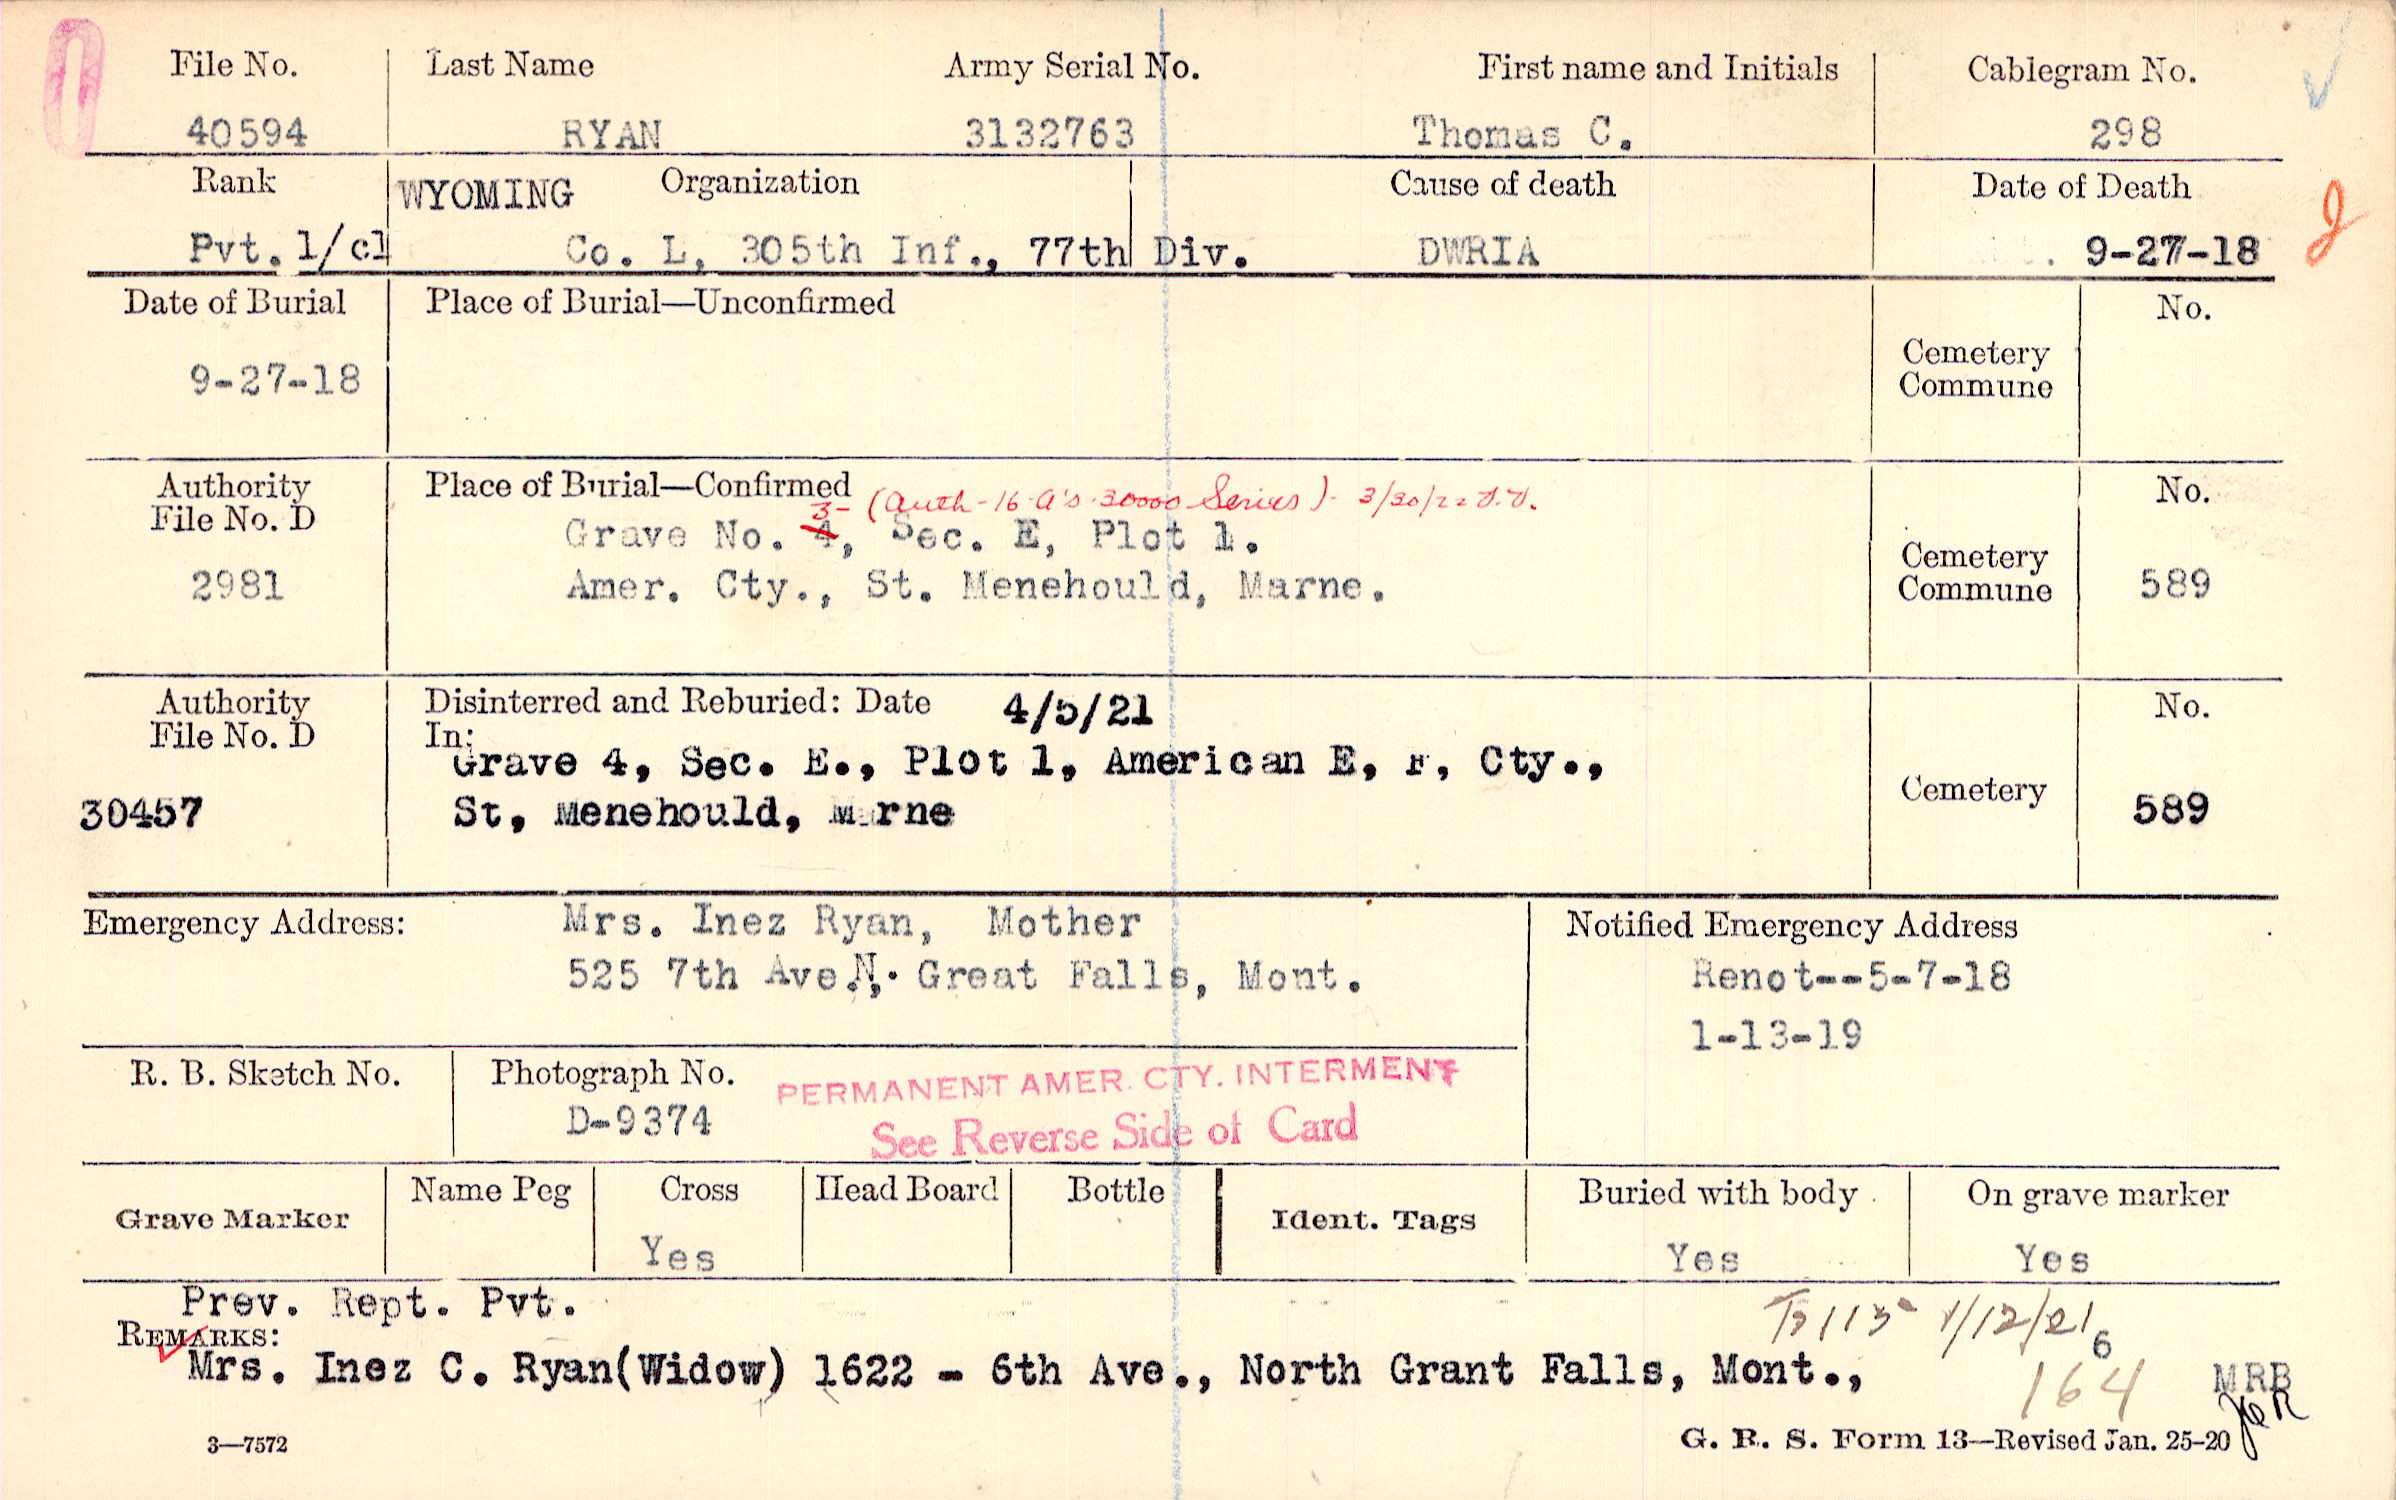 File No. Last Name Army Serial No. First name and Initials Cablegram No.
40594 RYAN 3132763 Thomas C. 298
Rank WYOMING Organization Cause of death Date of Death
Pvt. 1/cl Co. L, 305th Inf., 77th Div. DWRIA 9-27-18
Date of Burial Place of Burial—Unconfirmed No.
9-27-18 Cemetery
Commune
Authority Place of Burial—Confirmed No.
3- (Auth-16-A's-30000 Series)- 3/30/22
File No. D Grave No. 4, Sec. E, Plot 1. Cemetery
2981 Amer. Cty., St. Menehould, Marne. Commune 589
Authority Disinterred and Reburied: Date 4/5/21 No.
File No. D In:
Grave 4, Sec. E., Plot 1, American E, F, Cty., Cemetery
30457 St, Menehould, Marne 589
Emergency Address: Mrs. Inez Ryan, Mother Notified Emergency Address
525 7th Ave.N, Great Falls, Mont. Renot--5-7-18
1-13-19
R. B. Sketch No. Photograph No. PERMANENT AMER. CTY. INTERMENT
D-9374 See Reverse Side of Card
Grave Marker Name Peg Cross Head Board Bottle Ident. Tags Buried with body On grave marker
Yes Yes Yes
Prev. Rept. Pvt.
REMARKS: 1/12/21 6
Mrs. Inez C. Ryan(Widow) 1622 - 6th Ave., North Grant Falls, Mont., 164 MRB
3—7572 G. R. S. Form 13—Revised Jan. 25-20